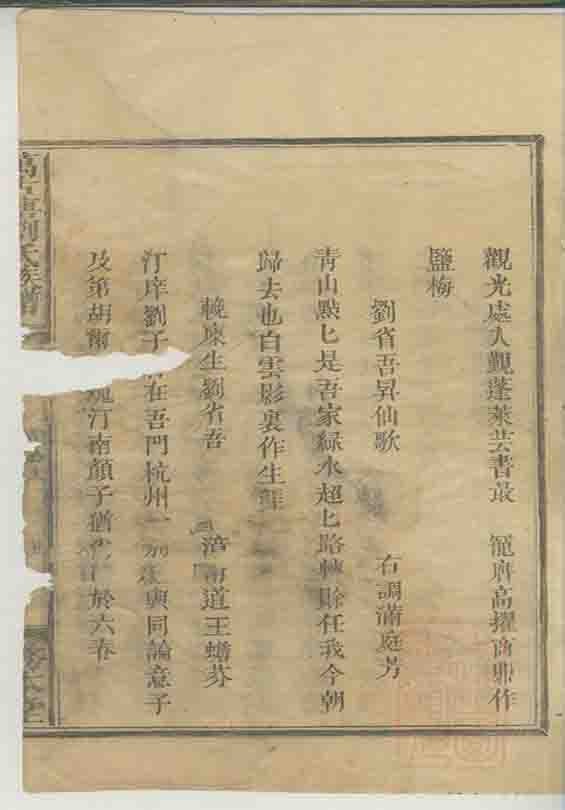 觀光處入覲蓬萊芸書最 寵膺高擢商鼎作
鹽梅
右調滿庭芳
劉省吾昇仙歌
靑山點匕是吾家綠水超匕路轉賒任我今朝
歸去也白雲影裏作生涯
輓庠生劉省吾 濟南道王蟠芬
汀庠劉子 在吾門杭州一別 與同論意子
及第胡爾 汀南顏子猶 於六春
劉氏族譜